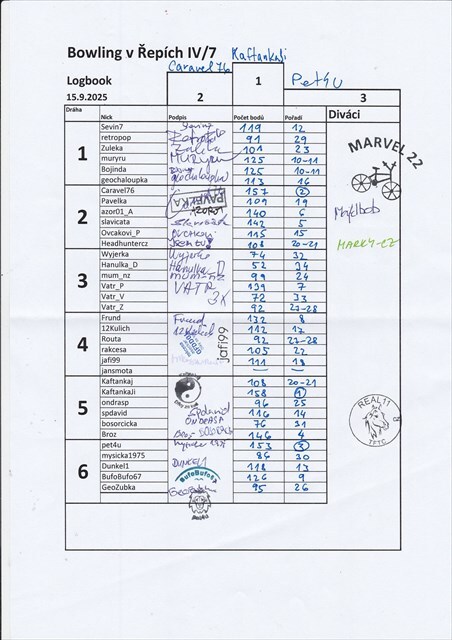 Bowling v Řepích IV/7
KaftankaJi
Caravel76
Logbook
1
Pet4u
15.9.2025
2
3
Dráha
Nick
Podpis
Počet bodů
Pořadí
Diváci
1
Sevin7 119 12
retropop 91 29
Zuleka Zuleka 101 23
muryru MURYRU 125 10-11
Bojinda 125 10-11
geochaloupka geochaloupka 113 16
MARVEL 22
2
Caravel76 157 2
Pavelka PAVELKA 109 19
azor01_A 140 6
slavicata 142 5
Ovcakovi_P 115 15
Headhuntercz 108 20-21
MARKY-CZ
3
Wyjerka Wyjerka 74 32
Hanulka_D Hanulka_D 52 34
mum_nz mum-nz 99 24
Vatr_P VATR 139 7
Vatr_V 3X 72 33
Vatr_Z 92 27-28
4
Frund Frund 132 8
12Kulich 12Kulich 112 17
Routa 92 27-28
rakcesa 105 22
jafi99 jafi99 111 18
jansmota —
5
Kaftankaj 108 20-21
KaftankaJi 158 1
ondrasp 96 25
spdavid spdavid 116 14
bosorcicka 76 31
Broz 146 4
REAL11
TFTC
6
pet4u 153 3
mysicka1975 86 30
Dunkel1 DUNKEL1 118 13
BufoBufo67 BufoBufo67 126 9
GeoZubka 95 26